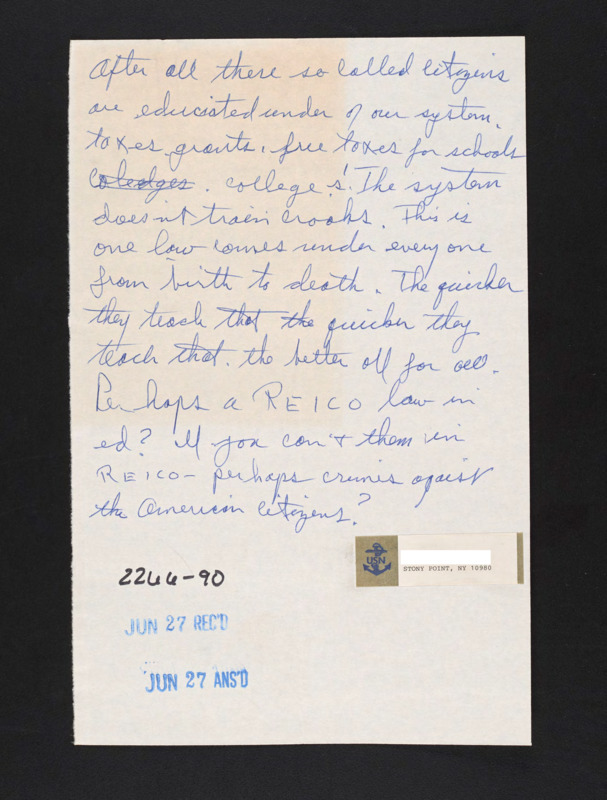 After all these so called citizens
are educiated under of our system.
taxes, grants, free taxes for schools
coledges. college s! The system
doesn't train crooks. This is
one law comes under everyone
from birth to death. The quicker
they teach that the quicker they
teach that. the better off for all.
Perhaps a REICO law in
ed? If you can't them in
REICO- perhaps crimes against
the American citizens?
2266-90
JUN 27 REC'D
JUN 27 ANS'D
USN
STONY POINT, NY 10980